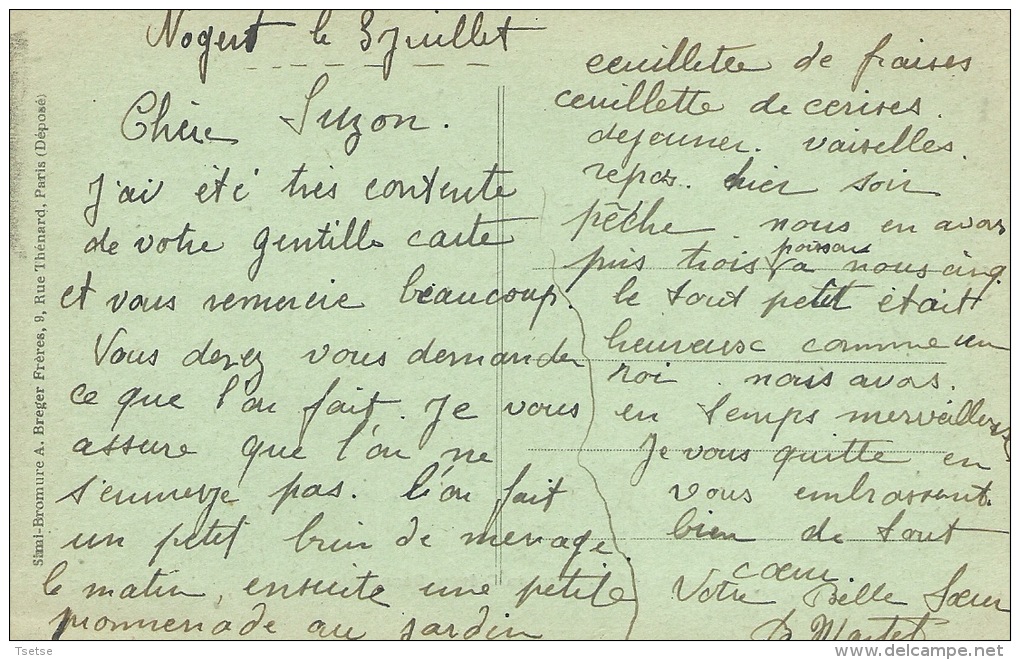 Nogent le 3 Juillet
Chère Suzon.
J'ai été très contente
de votre gentille carte
et vous remercie beaucoup.
Vous devez vous demander
ce que l'on fait. Je vous
assure que l'on ne
s'ennuye pas. l'on fait
un petit brin de menage.
le matin, ensuite une petite
promenade au jardin
ceuillette de fraises
ceuillette de cerises.
dejeuner. vaiselles.
repos. hier soir
pêche nous en avos
pris trois poissons a nous cinq.
le tout petit était
heureux comme un
roi. nous avos.
en temps merveilleux
Je vous quitte en
vous embrassent.
bien de tout
cœur
Votre Belle Sœur
Sami-Bromure A. Breger Frères, 9, Rue Thénard, Paris (Déposé)
Tsetse
delcampe.net